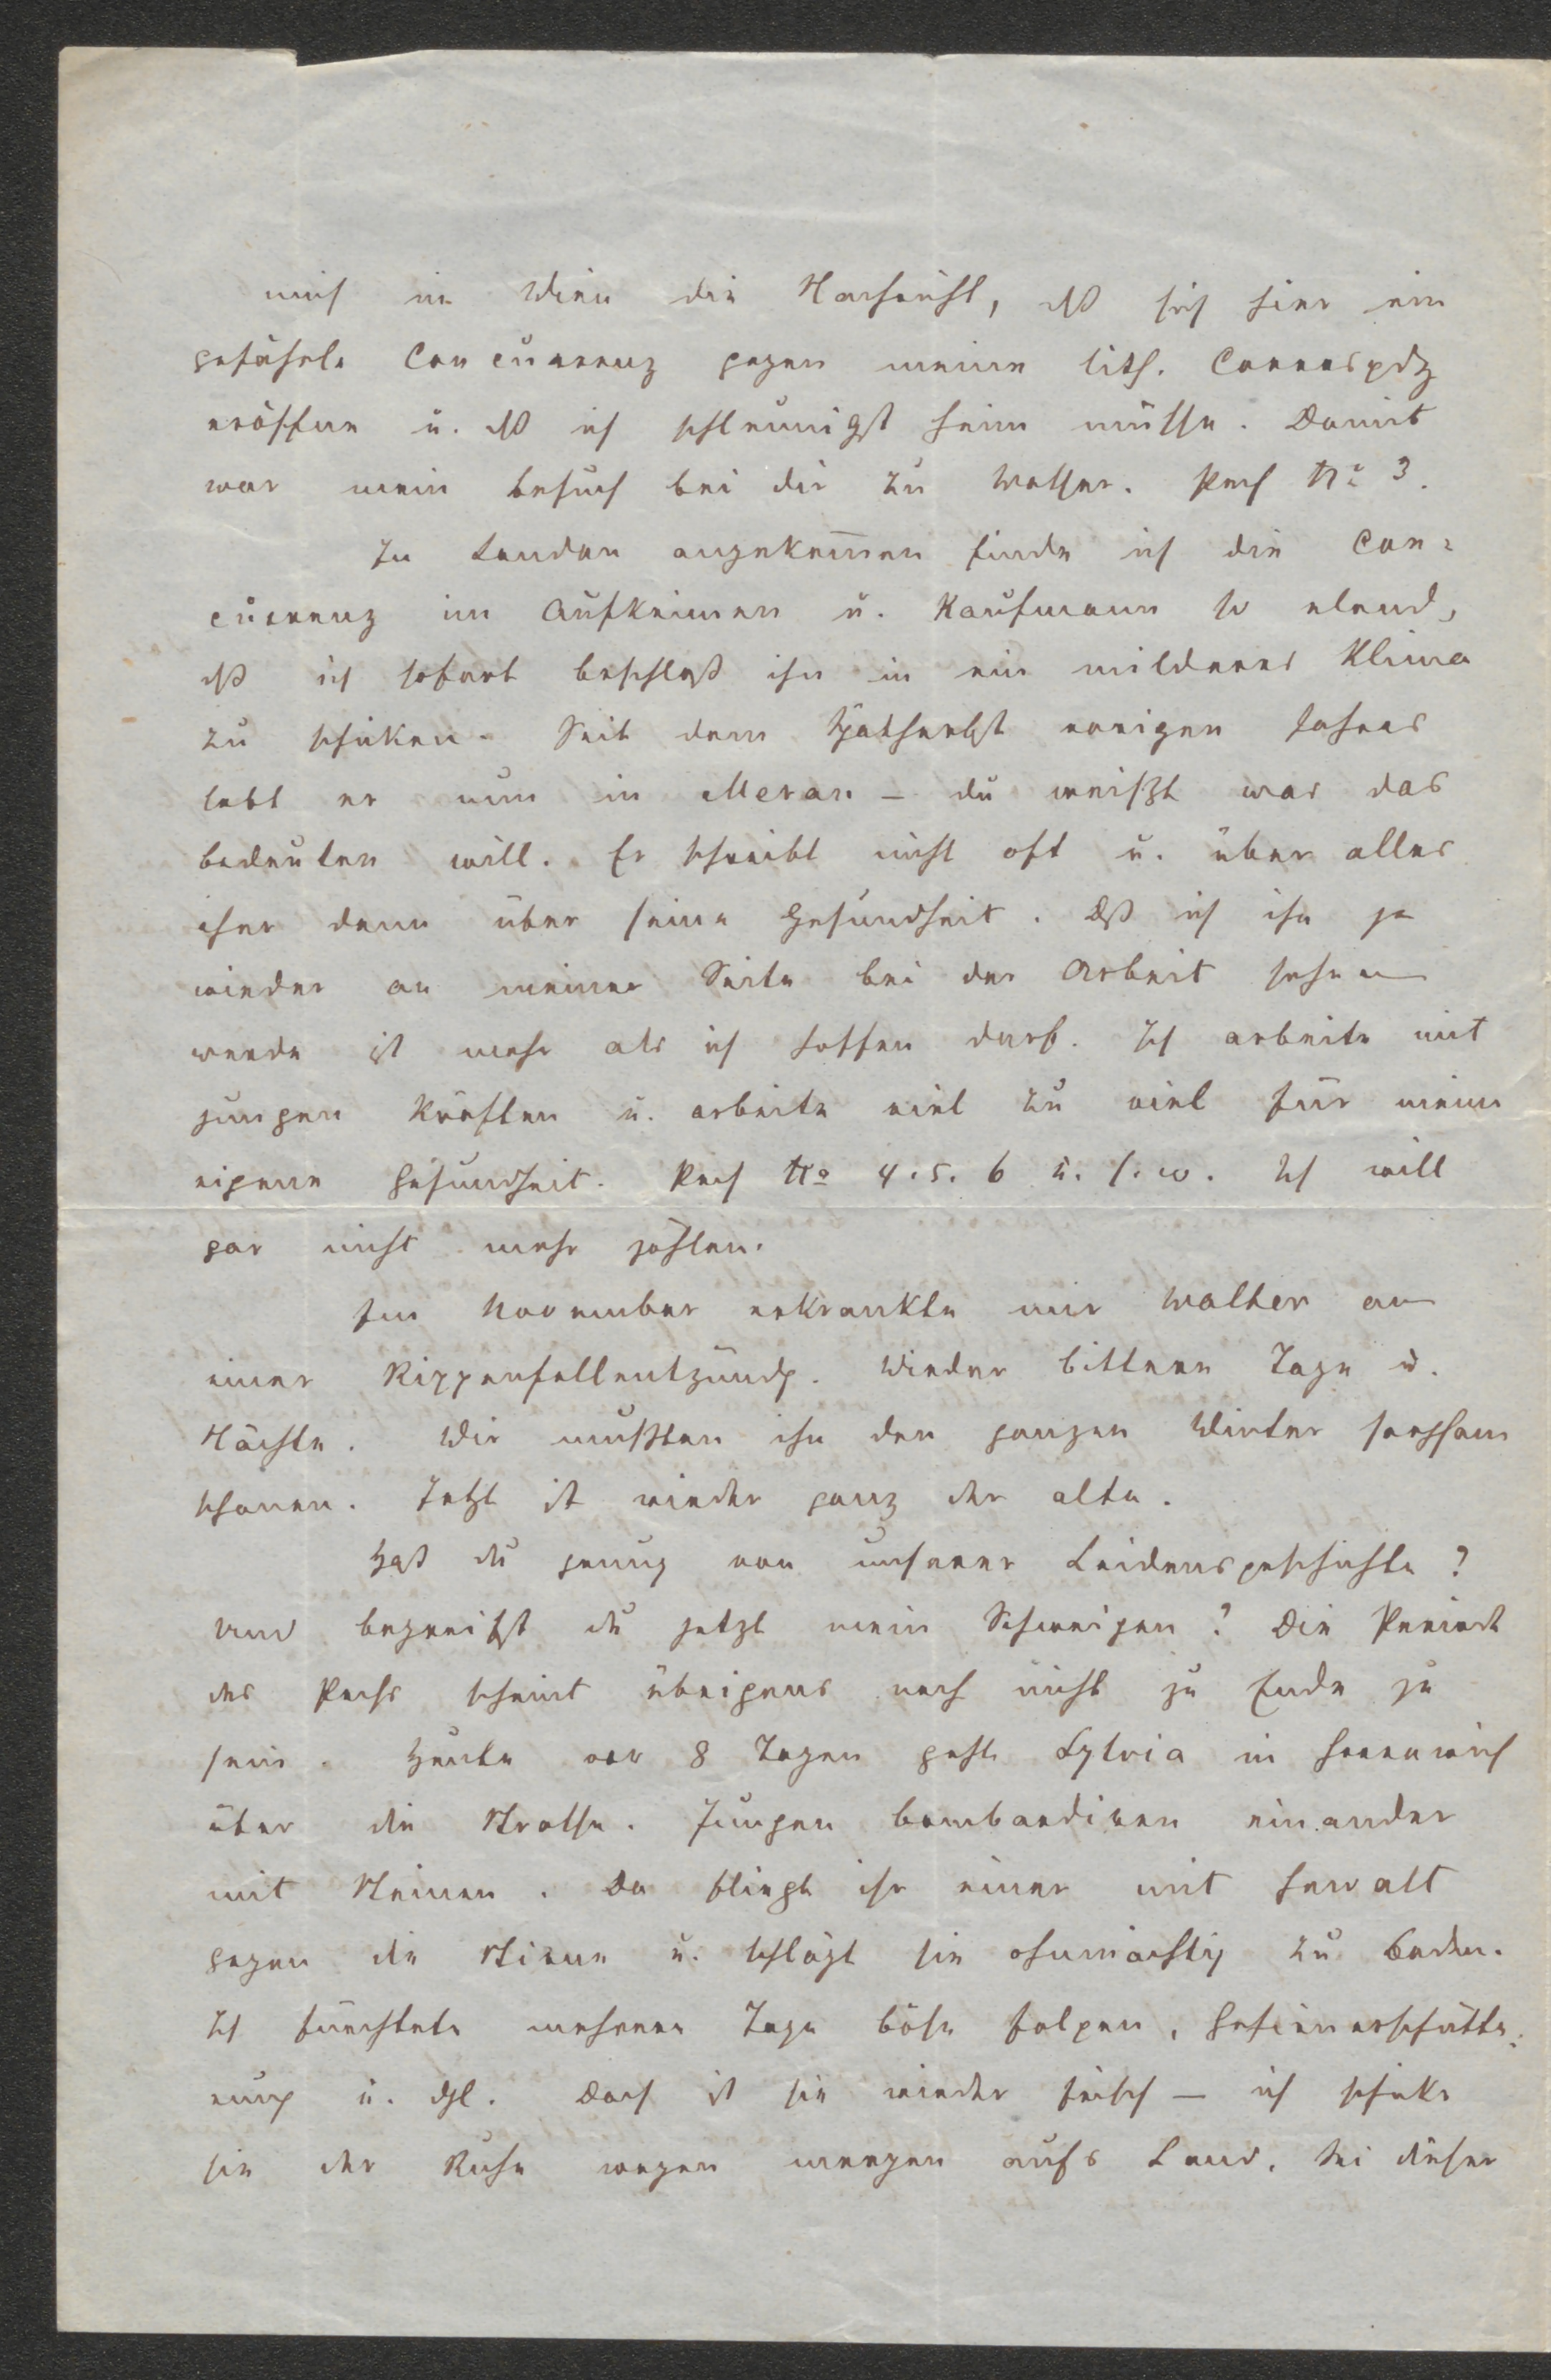 mich in Wien die Nachricht, dß sich hier ein
gefährl. Concurrenz gegen meine lith. Correspdz
eröffne u. dß ich schleunigst heim müsse. Damit
war mein Besuch bei dir zu Wasser. Pech No 3.
In London angekom̅en finde ich die Con=
currenz im Aufkeimen u. Kaufmann so elend,
dß ich sofort beschloß ihn in ein milderes Klima
zu schicken. Seit dem Spätherbst vorigen Jahres
lebt er nun in Meran – du weißt was das
bedeuten will. Er schreibt nicht oft u. über alles
eher denn über seine Gesundheit. Dß ich ihn je
wieder an meiner Seite bei der Arbeit sehen
werde ist mehr als ich hoffen darf. Ich arbeite mit
jungen Kräften u. arbeite viel zu viel für meine
eigene Gesundheit. Pech No 4. 5. 6 u. s. w. Ich will
gar nicht mehr zählen.
Im November erkrankte mir Walther an
einer Rippenfellentzündg. Wieder bittere Tage u.
Nächte. Wir mußten ihn den ganzen Winter sorgsam
schonen. Jetzt ist wieder ganz der alte.
Hast du genug von unserer Leidensgeschichte?
Und begreifst du jetzt mein Schweigen? Die Periode
des Pechs scheint übrigens noch nicht zu Ende zu
sein. Heute vor 8 Tagen geht Sylvia in Greenwich
über die Strasse. Jungen bombardiren einander
mit Steinen. Da fliegt ihr einer mit Gewalt
gegen die Stirne u. schlägt sie ohnmächtig zu Boden.
Ich fürchtete mehrere Tage böse Folgen, Gehirnerschütte=
rung u. dgl. Doch ist sie wieder frisch – ich schicke
sie der Ruhe wegen morgen aufs Land. Bei dieser